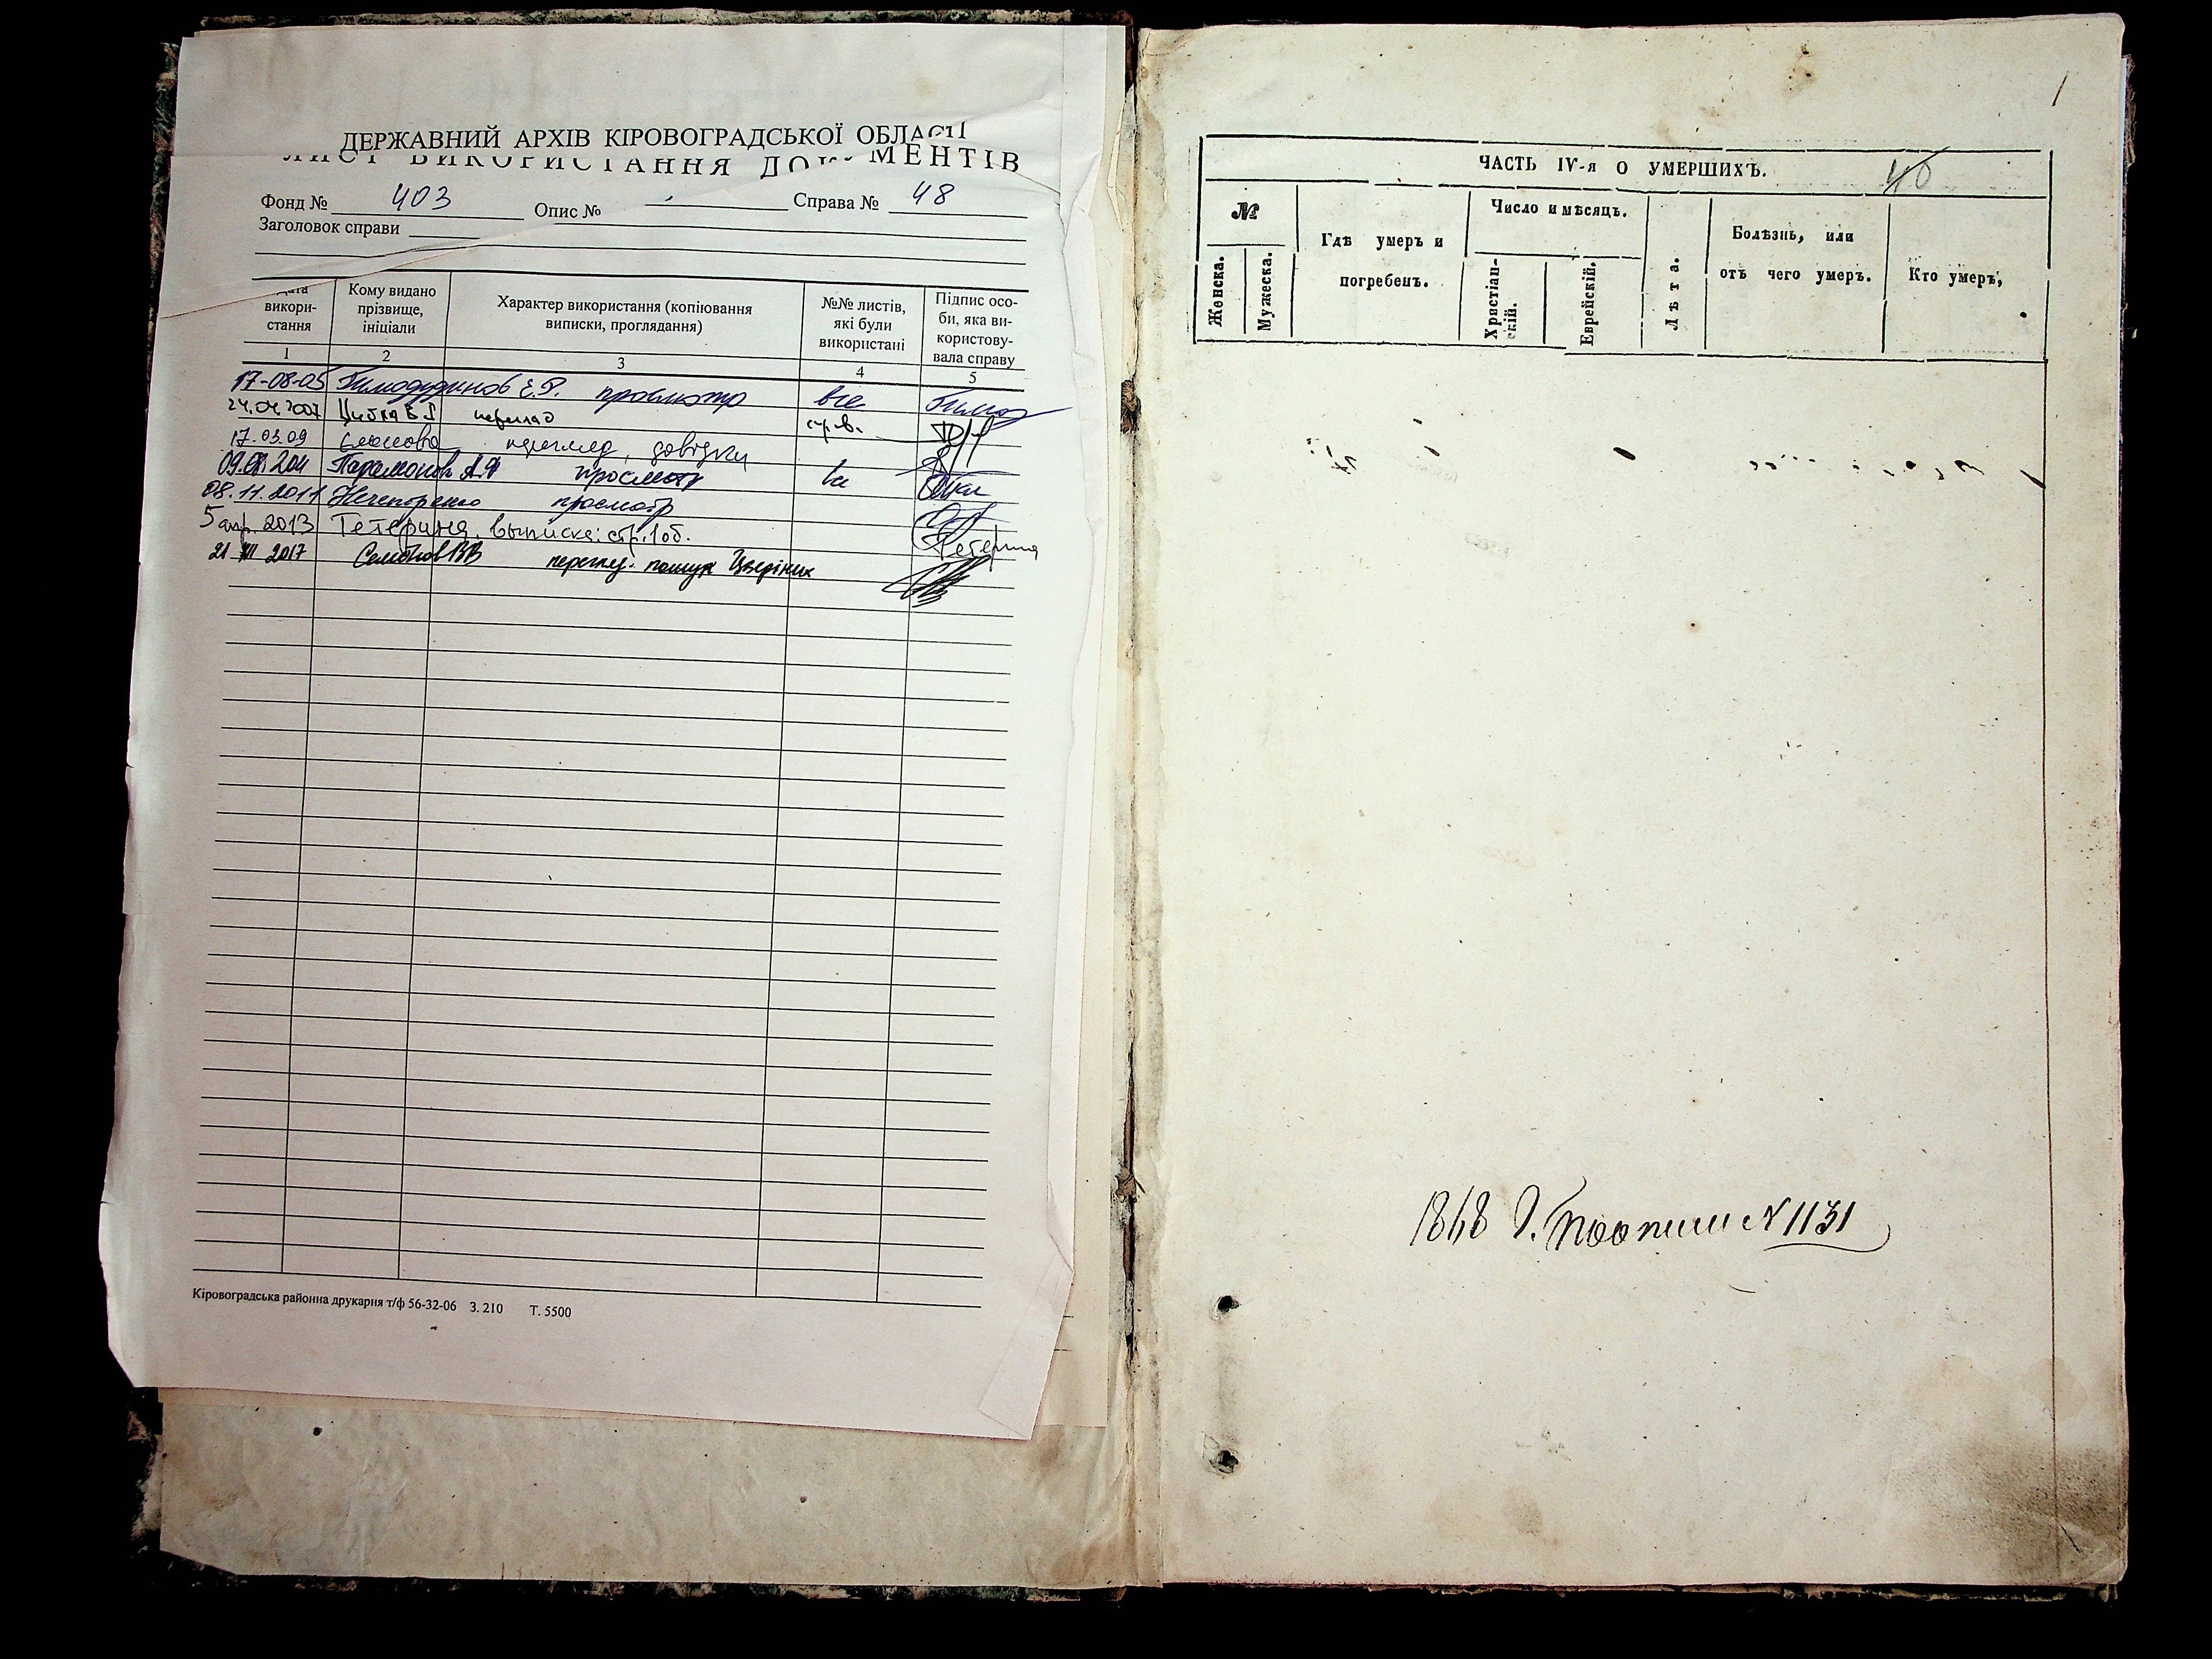 ДЕРЖАВНИЙ АРХІВ КІРОВОГРАДСЬКОЇ ОБЛАСТІ
ЛИСТ ВИКОРИСТАННЯ ДОКУМЕНТІВ
Фонд № 403 Опис № Справа № 48
Заголовок справи
Дата використання
Кому видано прізвище, ініціали
Характер використання (копіювання виписки, проглядання)
№№ листів, які були використані
Підпис особи, яка використовувала справу
1 2 3 4 5
17-08-05 Е.Р. просмотр все
24.04.2007
17.03.09 перегляд, довідки
Парамонов А.Ф просмотр
08.11.2011 Нечепоренко просмотр
5 апр. 2013 Тетерина. выписка: стр. 1об.
21 2017 ВВ перегляд. пошук
Кіровоградська районна друкарня т/ф 56-32-06 З. 210 Т. 5500
1
ЧАСТЬ IV-я О УМЕРШИХЪ. 40
№
Женска.
Мужеска.
Гдѣ умеръ и погребенъ.
Число и мѣсяцъ.
Христіанскій.
Еврейскій.
Лѣта.
Болѣзнь, или отъ чего умеръ.
Кто умеръ,
1868 По описи № 1131